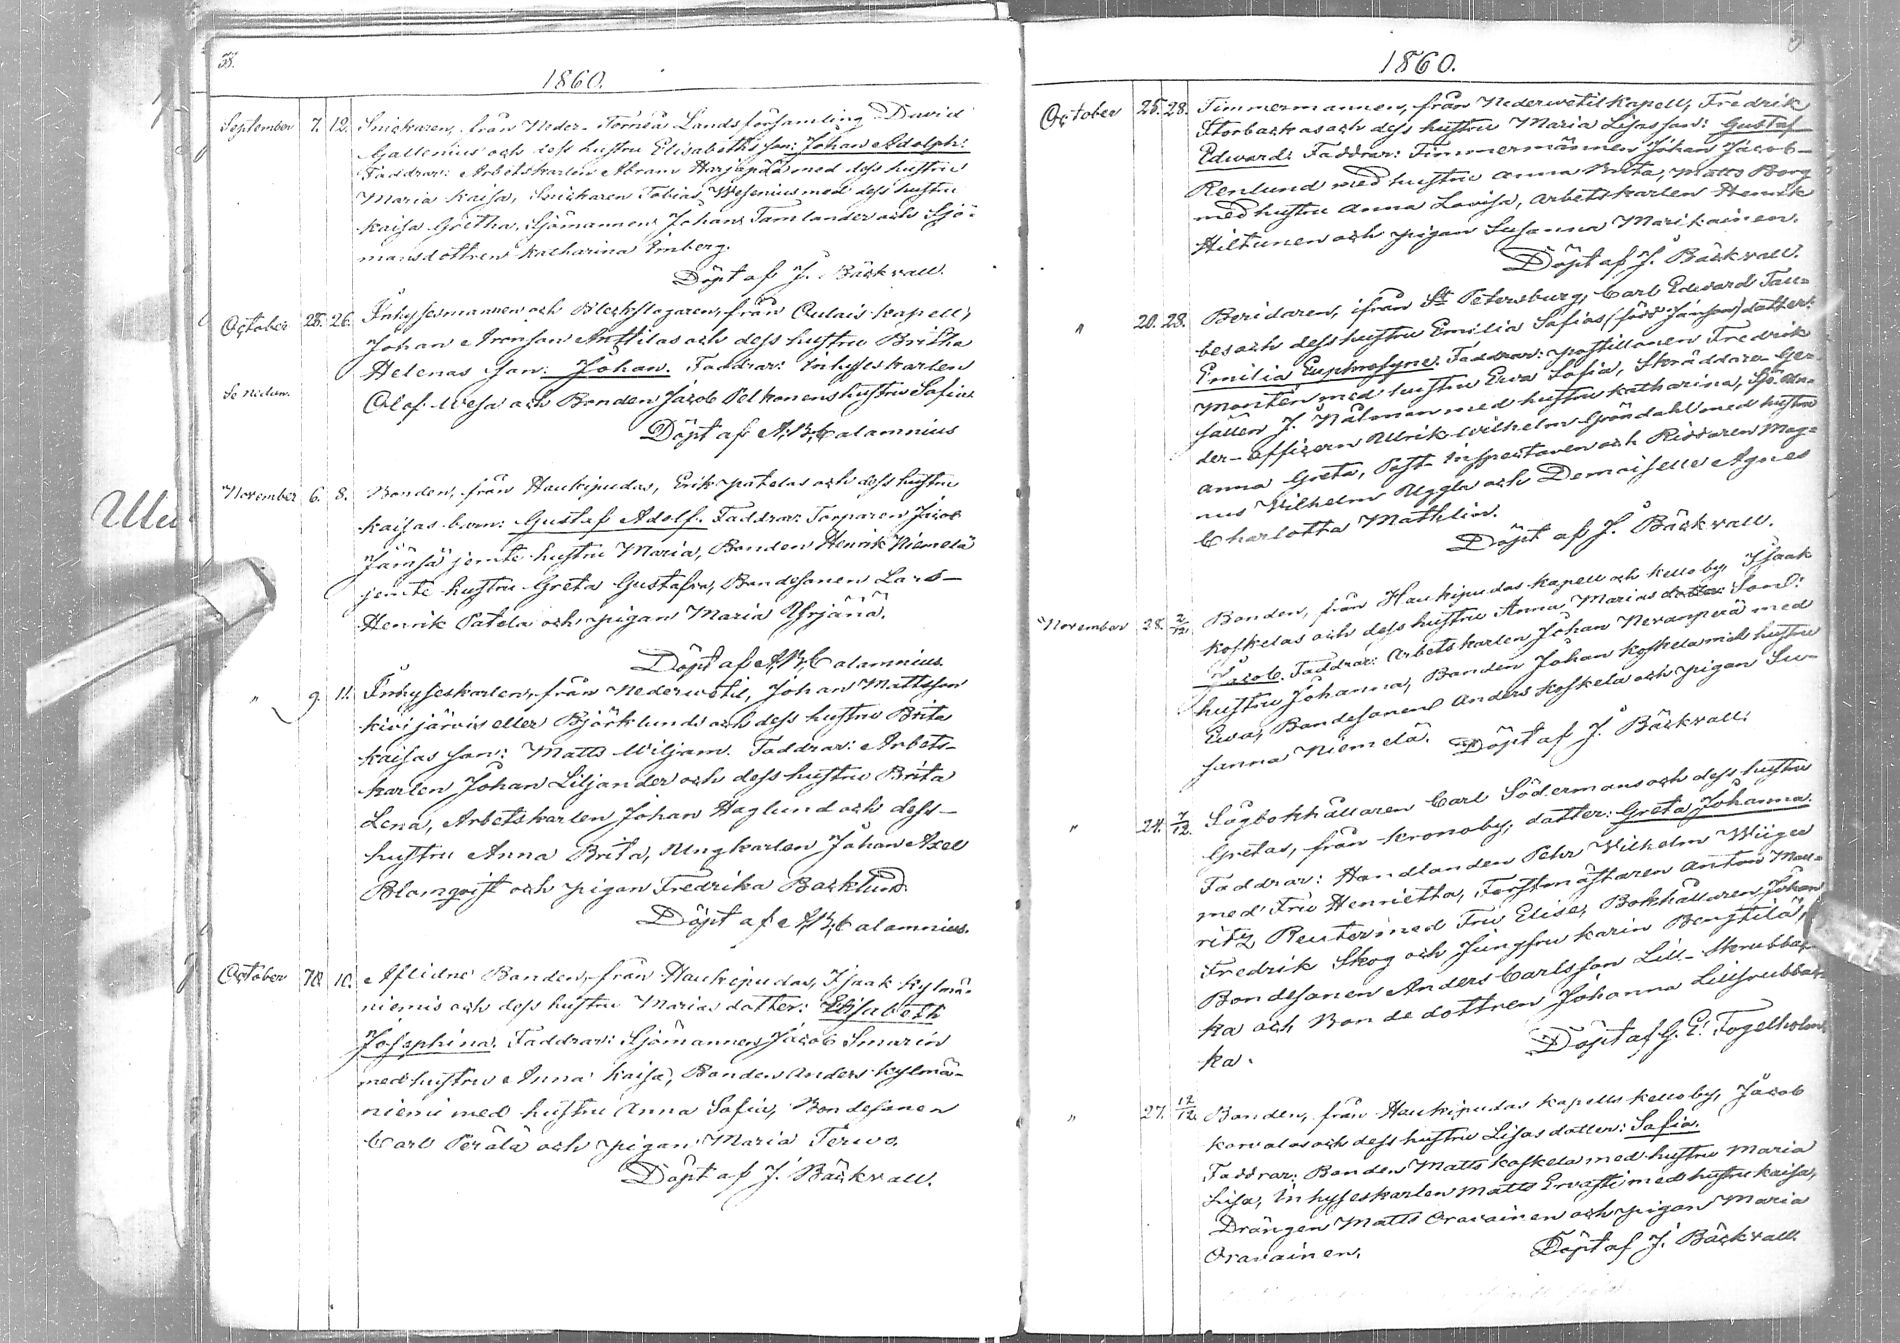 38.
1860.
September 7. 12. Snickaren, från Neder-Torneå Landsförsamling David
Gallenius och dess hustru Elisabeths son: Johan Adolph.
Faddrar: Arbetskarlen Abram Harjapää med dess hustru
Maria Kaisa, Snickaren Tobias Wesenius med dess hustru
Kaisa Gretha, Sjömannen Johan Tamlander och Sjö-
mansdottren Katharina Enberg.
Döpt af J. Bäckvall.
October 25. 26. Inhysesmannen och Bleckslagaren, från Oulais kapell,
Johan Aronson Anttilas och dess hustru Britha
Helenas son: Johan. Faddrar: Inhyseskarlen
Se nedan. Olof Wesa och Bonden Jacob Pelkonens hustru Sofia.
Döpt af A. B. Calamnius
November 6. 8. Bonden, från Haukipudas, Erik Patelas och dess hustru
Kaisas barn: Gustaf Adolf. Faddrar: Torparen Jacob
Jämsä jemte hustru Maria, Bonden Henrik Niemelä
jemte hustru Greta Gustafva, Bondesonen Lars-
Henrik Patela och pigan Maria Yrjänä.
Döpt af A. B. Calamnius.
" 9. 11. Inhyseskarlen, från Nederwetil, Johan Mattsson
Kivijärvis eller Björklunds och dess hustru Brita
Kaisas son: Matts Wiljam. Faddrar: Arbets-
karlen Johan Liljander och dess hustru Brita
Lena, Arbetskarlen Johan Haglund och dess-
hustru Anna Brita, Ungkarlen Johan Axel
Blomqvist och pigan Fredrika Backlund.
Döpt af A. B. Calamnius.
October 10. Aflidne Bonden, från Haukipudas, Isaak Kylmä-
niemis och dess hustru Marias dotter: Elisabeth
Josephina. Faddrar: Sjömannen Jacob Smarin
med hustru Anna Kaisa, Bonden Anders Kylmä-
niemi med hustru Anna Sofia, Bondesonen
Carl Perälä och pigan Maria Terwo.
Döpt af J. Bäckvall.
1860.
October 25. 28. Timmermannen, från Nederwetil Kapell, Fredrik
Storbackas och dess hustru Maria Lisas son: Gustaf
Edward. Faddrar: Timmermännen Johan Jacob-
Renlund med hustru Anna Brita, Matts Borg
med hustru Anna Lovisa, Arbetskarlen Henrik
Hiltunen och pigan Susanna Marikainen.
Döpt af J. Bäckvall.
" 20. 28. Beridaren, ifrån St Petersburg, Carl Edward Tau-
bes och dess hustru Emilia Sofias (född Jansson) dotter:
Emilia Euphrosyne. Faddrar: Postillonen Fredrik
Montén med hustru Ewa Sofia, Skräddare Ge-
sällen J. Nålman med hustru Katharina, Sjö-Un-
der-officern Ulrik Wilhelm Gröndahl med hustru
Anna Greta, Post-Inspectoren och Riddaren Mag-
nus Wilhelm Uggla och Demoiselle Agnes
Charlotta Mathlin.
Döpt af J. Bäckvall.
November 28. 2/12. Bonden, från Haukipudas Kapell och Kello by, Isaak
Koskelas och dess hustru Anna Marias dotter Son:
Jacob. Faddrar: Arbetskarlen Johan Nevanperä med
hustru Johanna, Bonden Johan Koskela med hustru
Ewa, Bondesonen Anders Koskela och pigan Su-
sanna Niemelä. Döpt af J. Bäckvall.
" 24. 7/12. Sågbokhållaren Carl Södermans och dess hustru
Gretas, från Kronoby, dotter: Greta Johanna.
Faddrar: Handlanden Pehr Wilhelm Wiigu
med Fru Henrietha, Forstmästaren Anton Mau-
ritz Reuter med Fru Elise, Bokhållaren Johan
Fredrik Skog och Jungfru Karin Bengtilä,
Bondesonen Anders Carlsson Lill-Skrubbac-
ka och Bondedottren Johanna Lillsrubbac-
ka.
Döpt af G. E. Fogelholm.
" 27. 17/12. Bonden, från Haukipudas kapells Kello by, Jacob
Korvalas och dess hustru Lisas dotter: Sofia.
Faddrar: Bonden Matts Koskela med hustru Maria
Lisa, Inhyseskarlen Matts Ervasti med hustru Kaisa,
Drängen Matts Oravainen och pigan Maria
Oravainen.
Döpt af J. Bäckvall.